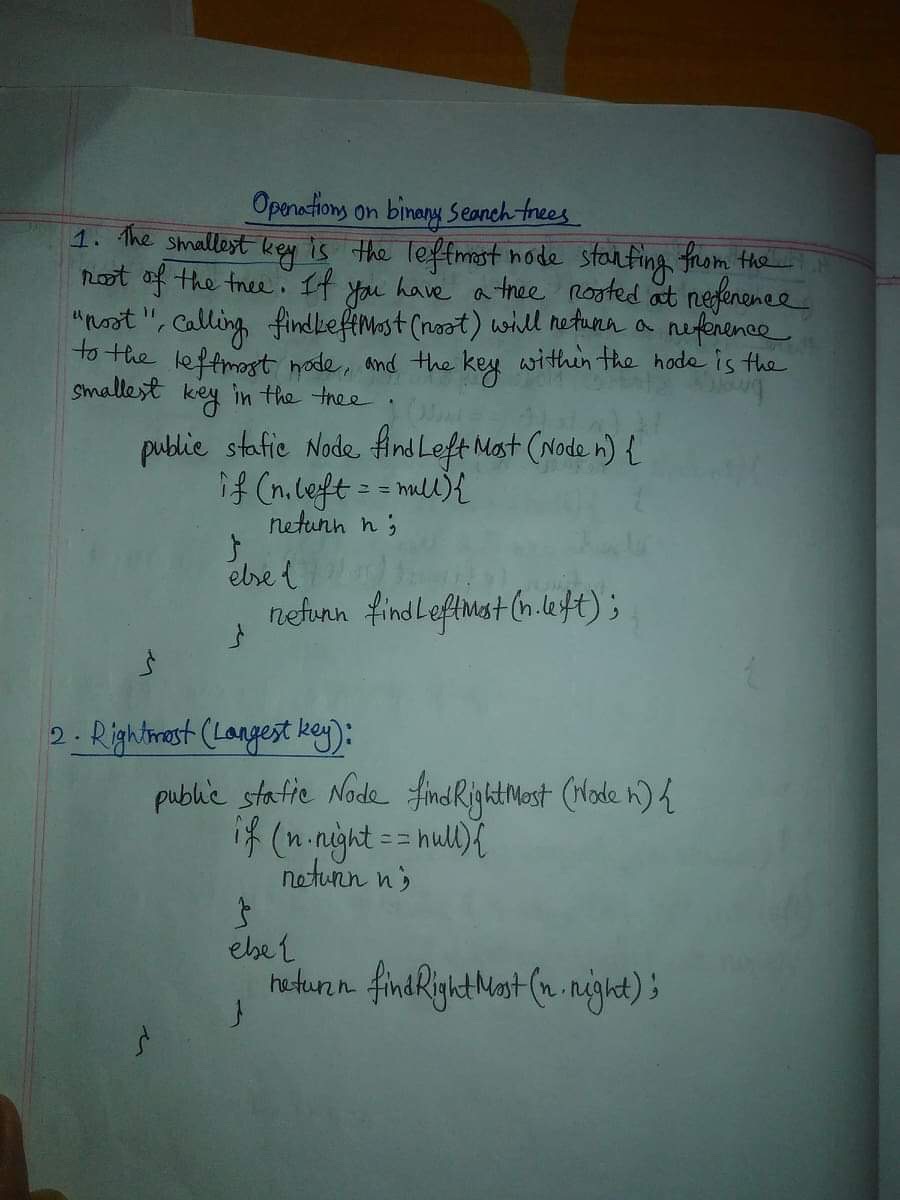 Operations on binary search trees
1. The smallest key is the leftmost node starting from the
root of the tree. If you have a tree rooted at reference
"root", calling findLeftMost(root) will return a reference
to the leftmost node, and the key within the node is the
smallest key in the tree.
public static Node findLeftMost (Node n) {
if (n.left == null){
return n;
}
else {
return findLeftMost(n.left);
}
}
2. Rightmost (Largest key):
public static Node findRightMost (Node n) {
if (n.right == null){
return n;
}
else {
return findRightMost (n.right);
}
}